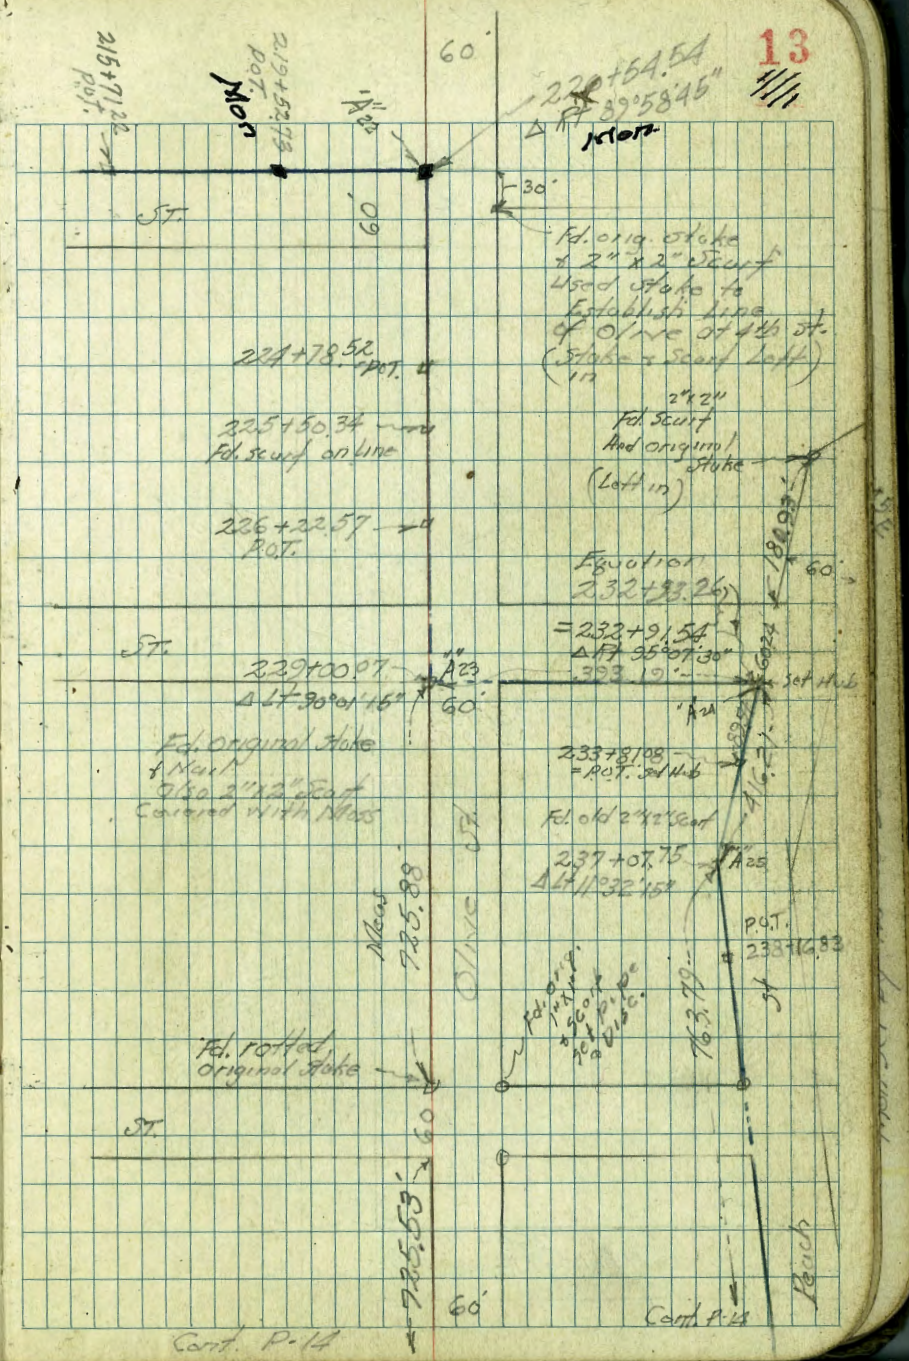 13
215+71.22
P.O.T.
MON
219+52.73
P.O.T.
"A"22
60'
+54.54
Δ Rt 89°58'45"
Mon.
30'
ST.
60'
Fd. orig. stake
& 2" x 2" Scurf
Used stake to
Establish Line
of Olive at 4th St.
(Stake & Scurf Left)
in
224+78.52
P.O.T.
225+50.34
Fd. scurf on line
2"x2"
Fd. Scurf
And original
Stake
(Left in)
226+22.57
P.O.T.
180.93'
60'
Equation
232+93.26
=232+91.54
Δ Rt 95°07'30"
393.19'
60.24
Set Hub
"A"24
ST.
229+00.07
Δ Lt 90°01'15"
"A"23
60'
Fd. Original Stake
& Nail
Also 2"x2" Scurf
Covered with Moss
233+81.08
=P.O.T. Set Hub
416.21
Fd. old 2"x2" Scurf
237+07.75
Δ Lt 11°32'15"
"A"25
Meas
725.88'
Olive St.
P.O.T.
238+16.83
St
763.79
Fd. Or.
Set Pipe
& Disc.
Fd. rotted
Original Stake
ST.
60
725.53'
60'
Peach
Cont. P-14
Cont. P-14